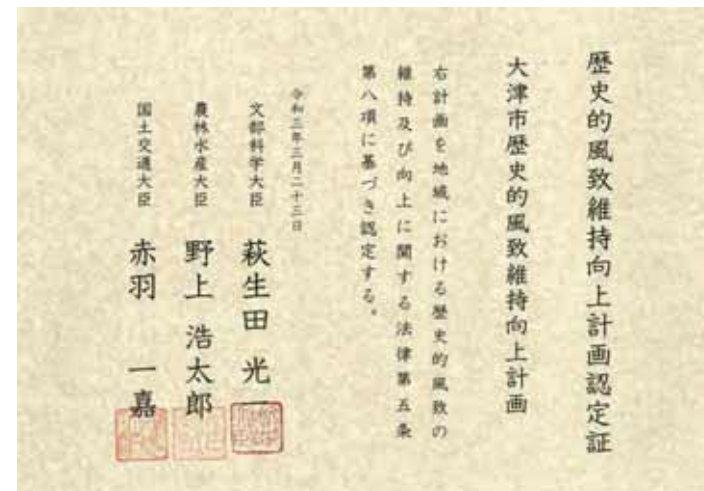 歴史的風致維持向上計画認定証
大津市歴史的風致維持向上計画
右計画を地域における歴史的風致の
維持及び向上に関する法律第五条
第八項に基づき認定する。
令和三年三月二十三日
文部科学大臣 萩生田 光一
農林水産大臣 野上 浩太郎
国土交通大臣 赤羽 一嘉